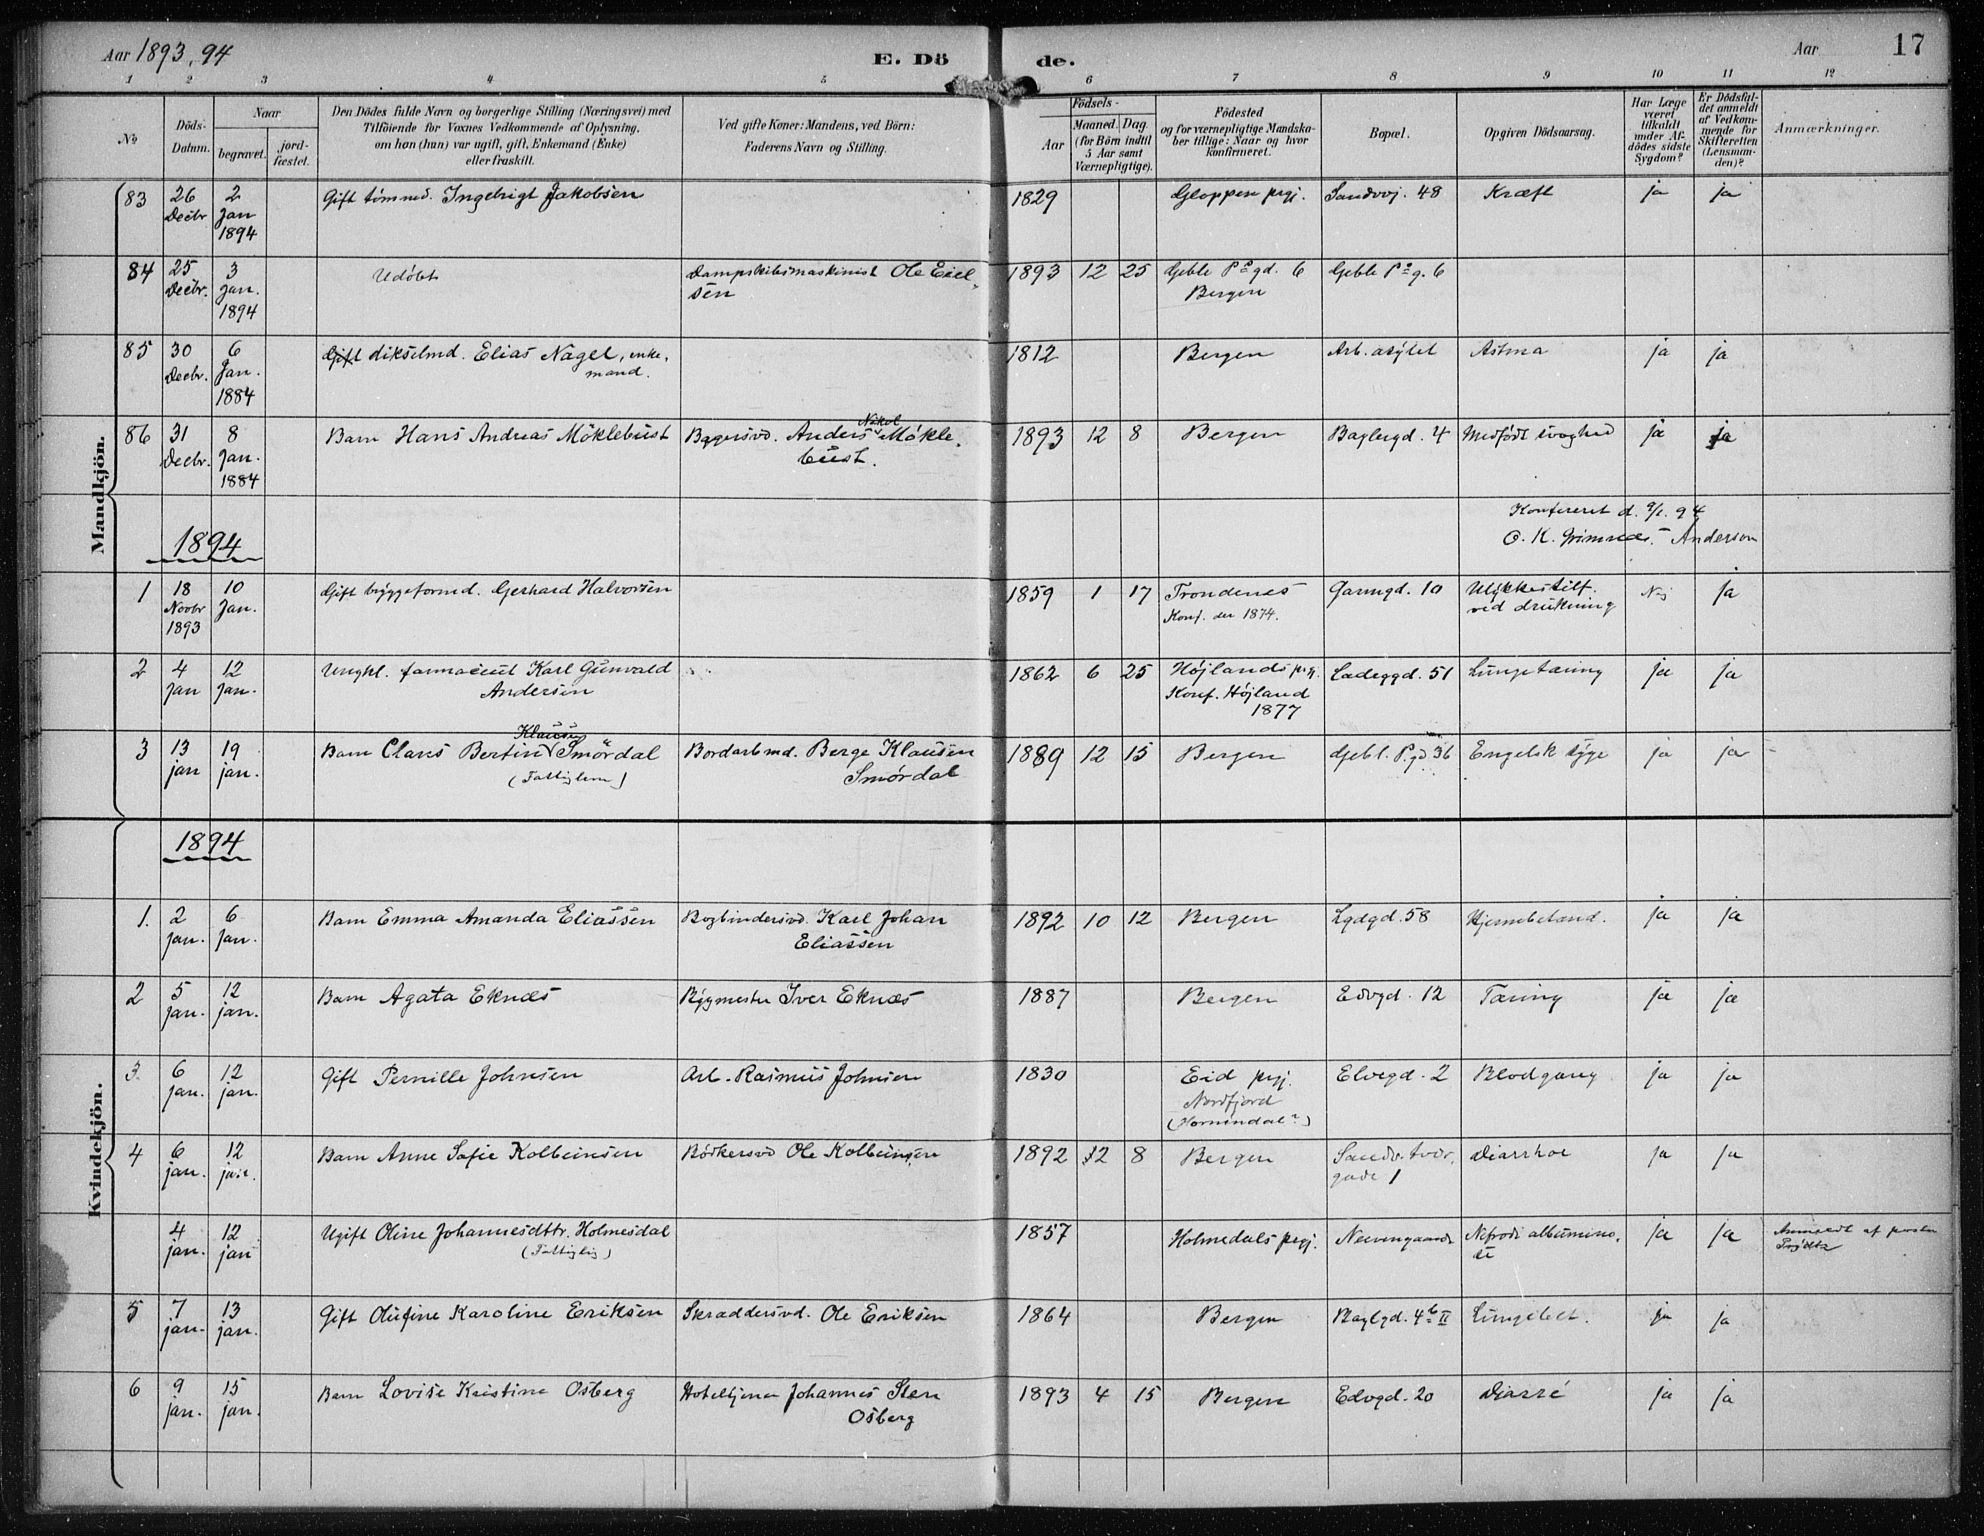 Aar 1893, 94
E. Dö
de.
Aar
17
1 2 3 4 5 6 7 8 9 10 11 12
No
Döds-Datum.
Naar
begravet.
jordfæstet.
Den Dödes fulde Navn og borgerlige Stilling (Næringsvei) med
Tilföiende for Voxnes Vedkommende af Oplysning,
om han (hun) var ugift, gift, Enkemand (Enke)
eller fraskilt.
Ved gifte Koner: Mandens, ved Börn:
Faderens Navn og Stilling.
Födsels-
Aar
Maaned. Dag
(for Börn indtil
5 Aar samt
Værnepligtige).
Födested
og for værnepligtige Mandska-
ber tillige: Naar og hvor
konfirmeret.
Bopæl.
Opgiven Dödsaarsag.
Har Læge
været
tilkaldt
under Af-
dödes sidste
Sygdom?
Er Dödsfal-
det anmeldt
af Vedkom-
mende for
Skifteretten
(Lensman-
den)?
Anmærkninger.
Mandkjön.
83 26 Decbr 2 Jan 1894 Gift tømmd. Ingebrigt Jakobsen 1829 Gloppen prgj. Sandvgj. 48 Kræft ja ja
84 25 Decbr. 3 Jan. 1894 Udöbt Dampskibsmaskinist Ole Eiel-
sen 1893 12 25 Geble Pgd. 6 Bergen Geble Pg. 6
85 30 Decbr. 6 Jan. 1884 Gift dikselmd. Elias Nagel, enke,
mand. 1812 Bergen Arb. asylet Astma ja ja
86 31 Decbr. 8 Jan. 1884 Barn Hans Andreas Möklebust Bagersvd. Anders Nikol Møkle,
bust. 1893 12 8 Bergen Baglergd. 4 Medfödt svaghed ja ja
1894
Konfereret d. 9/1. 94
O. K. Grimnes. Anderson
1 18 Novbr 1893 10 Jan. Gift byggeformd. Gerhard Halvorsen 1859 1 17 Trondenes
Konf. der 1874. Garmgd. 10 Ulykkestilf.
ved drukning Nej ja
2 4 Jan 12 Jan. Ungkl. farmaceut Karl Gunvald
Andersen 1862 6 25 Højlands prgj.
Konf. Højland
1877 Ladeggd. 51 Lungetæring ja ja
3 13 jan 19 jan. Barn Claus Bertin Klausen Smördal
(Fattiglem) Bordarbmd. Berge Klausen
Smørdal 1889 12 15 Bergen Gebl. P.gd 36 Engelsk syge ja ja
Kvindekjön.
1894
1. 2 jan. 6 jan. Barn Emma Amanda Eliassen Bogbindersvd. Karl Johan
Eliassen 1892 10 12 Bergen Lgdgd. 58 Hjernebetænd. ja ja
2 5 jan. 12 jan. Barn Agata Eknæs Bygmester Iver Eknæs 1887 Bergen Edvgd. 12 Tæring ja ja
3. 6 jan. 12 jan. Gift Pernille Johnsen Arb. Rasmus Johnsen 1830 Eid prgj.
Nordfjord
(Hornindal?) Elvegd. 2 Blodgang ja ja
4 6 jan. 12 jan. Barn Anne Sofie Kolbeinsen Bödkersvd Ole Kolbeinsen 1892 12 8 Bergen Sandv. tvær,
gade 1 Diarrhoe ja ja
4 jan. 12 jan Ugift Oline Johannesdttr. Holmesdal
(Fattiglig) 1857 Holmedals prgj. Neevengaarde ja ja Anmeldt af pastor
5 7 jan. 13 jan. Gift Olufine Karoline Eriksen Skræddersvd. Ole Eriksen 1864 Bergen Baglgd. 4 b II Lungebet. ja ja
6 9 jan. 15 jan. Barn Lovise Kristine Osberg Hoteltjener Johannes Sten
Osberg 1893 4 15 Bergen Edvgd. 20 Diarré ja ja